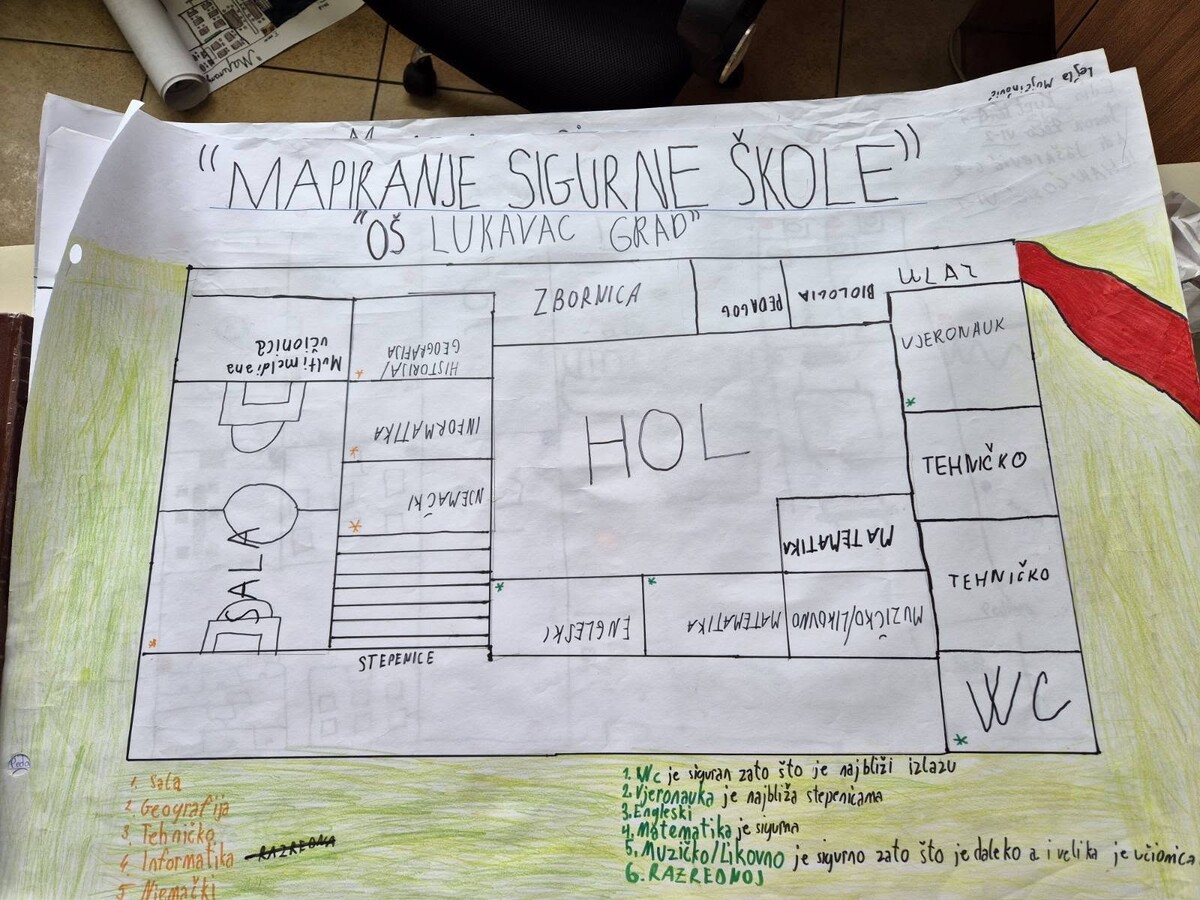 Lejla Mujčinović
"MAPIRANJE SIGURNE ŠKOLE"
"OŠ LUKAVAC GRAD"
ZBORNICA
PEDAGOG
BIOLOGIJA
ULAZ
Multimeldiana
učionica
HISTORIJA/
GEOGRAFIJA
VJERONAUK
INFORMATIKA
HOL
TEHNIČKO
NJEMAČKI
MATEMATIKA
SALA
TEHNIČKO
ENGLESKI
MATEMATIKA
MUZIČKO/LIKOVNO
STEPENICE
WC
1. Sala
2. Geografija
3. Tehničko
4. Informatika
5. Njemački
1. Wc je siguran zato što je najbliži izlazu
2. Vjeronauka je najbliža stepenicama
3. Engleski
4. Matematika je sigurna
5. Muzičko/Likovno je sigurno zato što je daleko a i velika je učionica
6. RAZREDNOJ